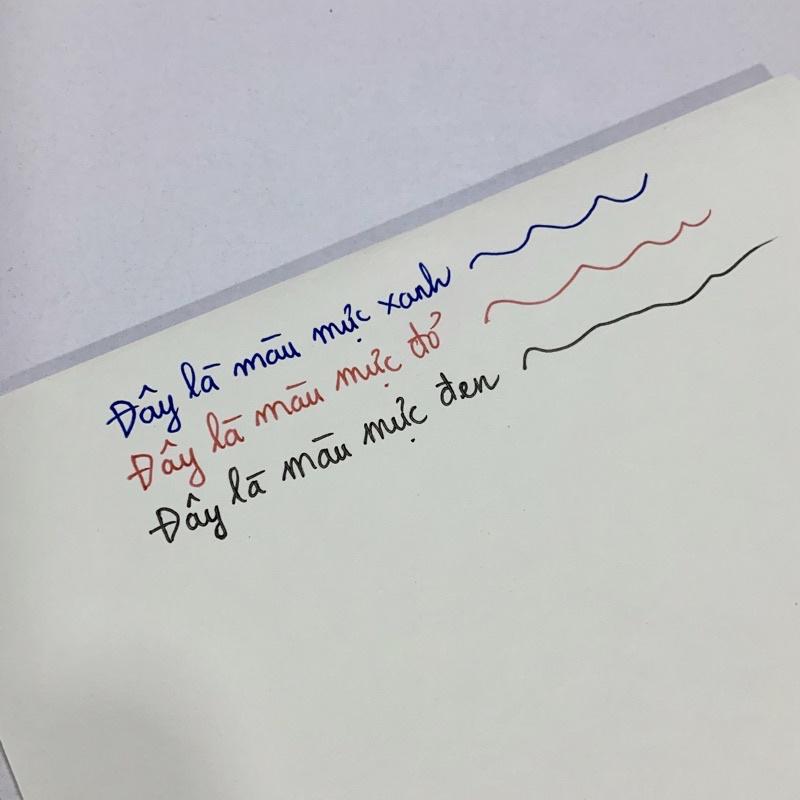 Đây là màu mực xanh
Đây là màu mực đỏ
Đây là màu mực đen